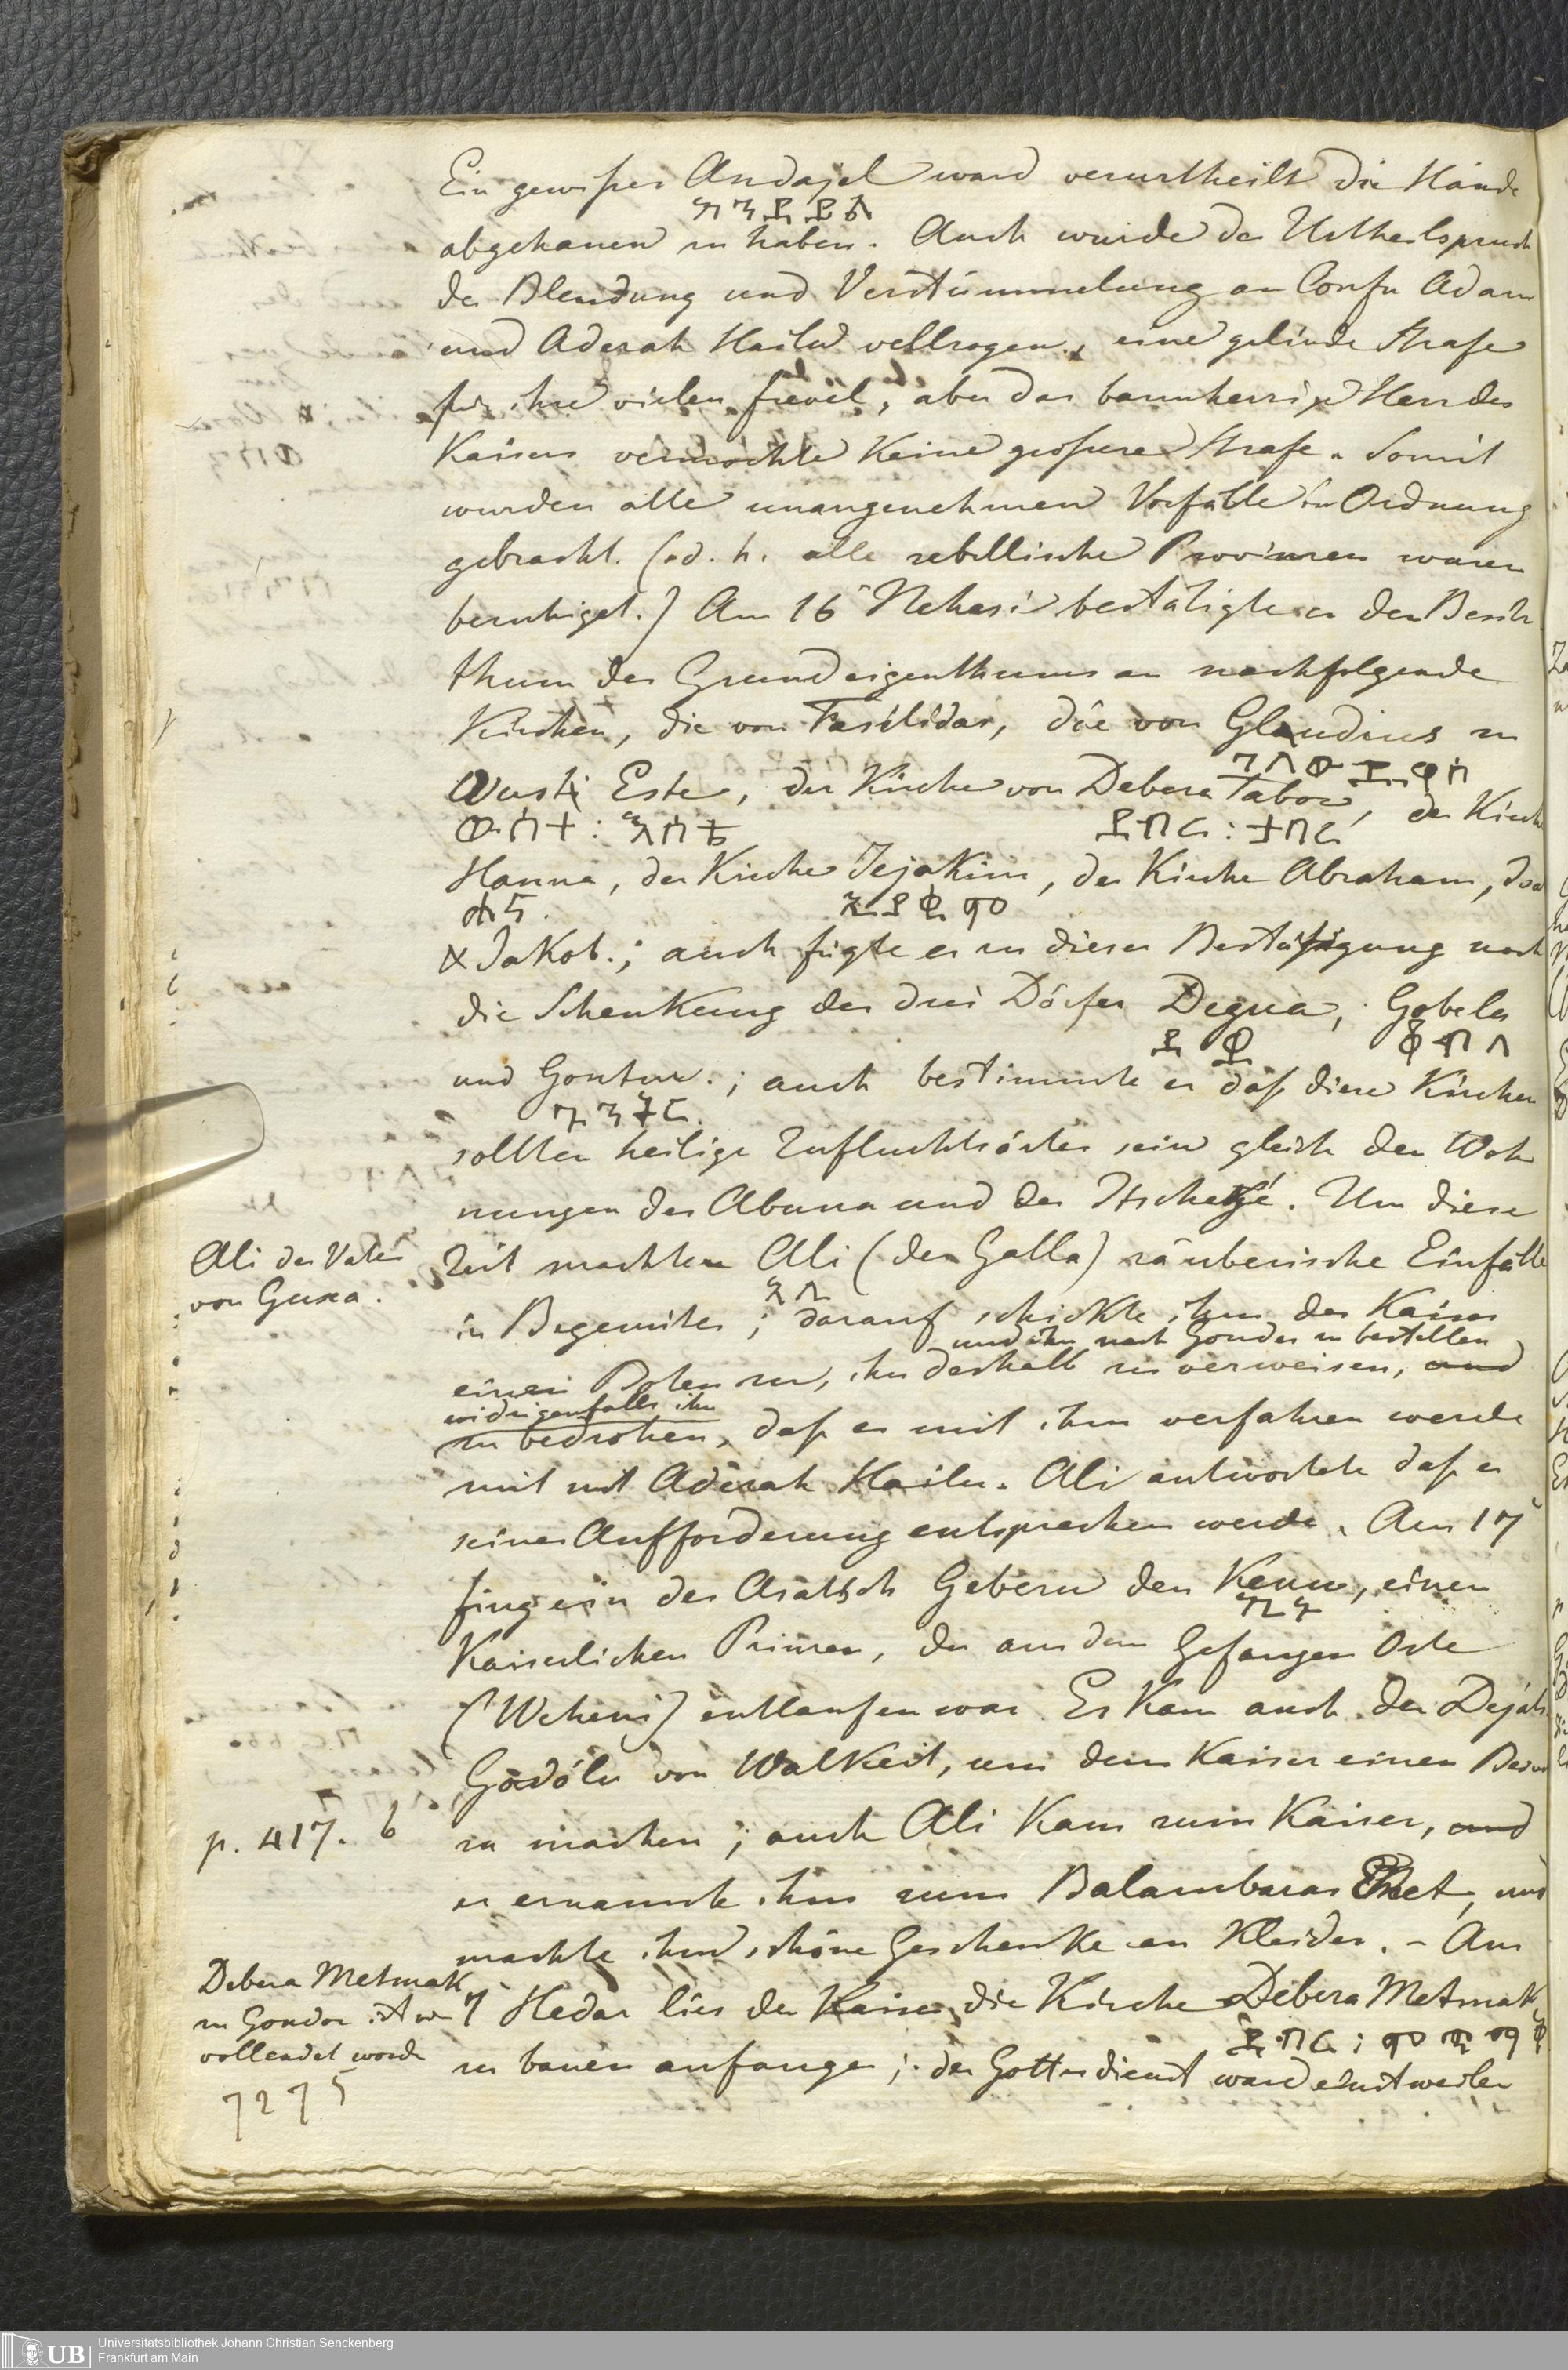 Ein gewisser Andajel ward verurtheilt die Hände
abgehauen zu haben. Auch wurde der Urtheilspruch
der Blendung und Verstümmelung an Confu Adam
und Aderah Hailu vollzogen, eine gelinde Strafe
für ihre vielen Frevel, aber das barmherzige Herz des
Kaisers vermochte keine grössere Strafe. Somit
wurden alle unangenehmen Vorfälle in Ordnung
gebracht. (d. h. alle rebellische Provinzen waren
beruhiget.) Am 16 Nehasi bestätigte er den Besitz
thum des Grundeigenthums an nachfolgende
Kirchen, die von Fasilidas, die von Glaudius zu
ገላውዴዎስ
Wusti Este, der Kirche von Debera Tabor, der Kirche
ውስተ : እስቴ ደብር : ታቦር
Hanna, der Kirche Jejakim, der Kirche Abraham,
ሐና.
Jakob.; auch fügte er zu dieser Bestätigung noch
die Schenkung der drei Dörfer Degua, Gobela
und Gontur.; auch bestimmte er dass diese Kirchen
sollten heilige Zufluchtsörter sein gleich den Woh
nungen des Abuna und des Itschegé. Um diese
Ali der Vater
von Guxa.
Zeit machten Ali (der Galla) räuberische Einfälle
ዓሊ
in Begemiter; darauf schickte ihm der Kaiser
und ihn nach Gonder zu bestellen
einen Boten zu, ihn deshalb zu verweisen, und
widrigenfalls ihn
zu bedrohen, dass er mit ihm verfahren werde
mit mit Aderah Hailu. Ali antwortete dass er
seiner Aufforderung entsprechen werde. Am 17
fing ein der Asatsch Geberu den Kenu, einen
Kaiserlichen Prinzen, der aus dem Gefangen Orte
(Weheni) entlaufen war. Es kam auch der Dejatsch
Godólu von Walkeit, um dem Kaiser einen Besuch
p. 417. b
zu machen; auch Ali kam zum Kaiser, und
er ernannte ihm zum Balambaras, und
machte ihm schöne Geschenke an Kleider. - Am
Debera Metmak
zu Gondor
vollendet worde
7275
7 Hedar lies der Kaiser die Kirche Debera Metmak
ደብር : መጥማቅ
zu bauen anfangen; der Gottesdienst ward einstweilen
UB
Universitätsbibliothek Johann Christian Senckenberg
Frankfurt am Main